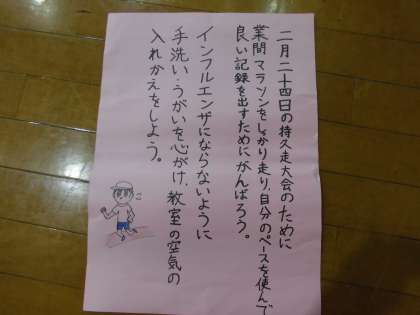 二月二十四日の持久走大会のために
業間マラソンをしっかり走り、自分のペースを使んで
良い記録を出すためにがんばろう。
インフルエンザにならないように
手洗い・うがいを心がけ、教室の空気の
入れかえをしよう。